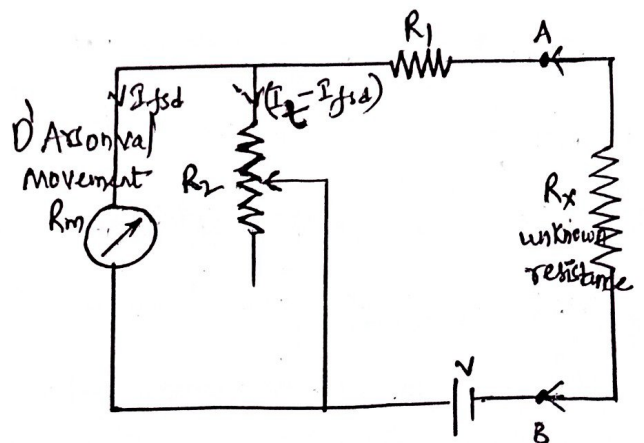 R1
A
Ifsd
(It-Ifsd)
D'Arsonval
Movement
Rm
R2
Rx
unknown
resistance
V
B